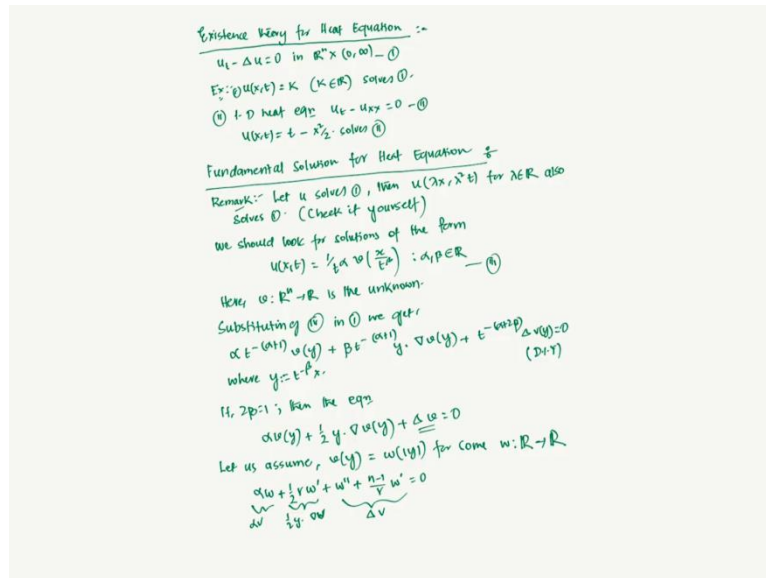 Existence theory for Heat Equation :-
u_t - Δu = 0 in ℝⁿ × (0,∞) — ①
Ex:- ① u(x,t) = K (K∈ℝ) solves ①.
⑪ 1-D heat eqn u_t - u_xx = 0 - ⑪
u(x,t) = t - x²/2 . solves ⑪
Fundamental Solution for Heat Equation :-
Remark:- Let u solves ①, then u(λx, λ²t) for λ∈ℝ also
solves ①. (Check it yourself)
we should look for solutions of the form
u(x,t) = 1/t^α v(x/t^β) ; α,β∈ℝ —
Here, v: ℝⁿ→ℝ is the unknown.
Substituting ⑭ in ① we get,
αt^-(α+1) v(y) + βt^-(α+1) y.∇v(y) + t^-(α+2β) Δv(y)=0
where y:= t^-β x. (D.I.Y)
If, 2β=1 ; then the eqn
αv(y) + 1/2 y.∇v(y) + Δv = 0
Let us assume, v(y) = w(|y|) for some w: ℝ→ℝ
αw + 1/2 rw' + w'' + n-1/r w' = 0
αv 1/2 y.∇v Δv